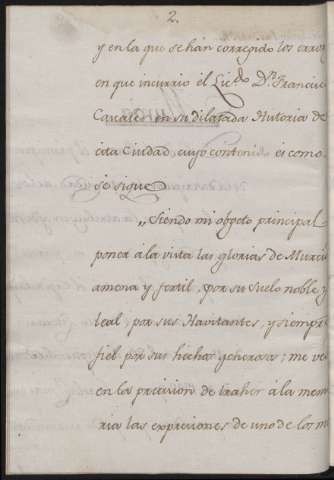 2.
y en la que se hán corregido los error
en que incurrio èl Lic.do D.n Francisc
Cascales en su dilatada Historia de
esta Ciudad, cuyo contenido es como
se sigue
,, Siendo mi objeto principal
poner à la vista las glorias de Murcia
amena y fertil, por su suelo noble y
leal, por sus Havitantes, y siempre
fiel por sus hechos generosos; me veo
en la precision de traher à la mem
ria las expresiones de uno de los m